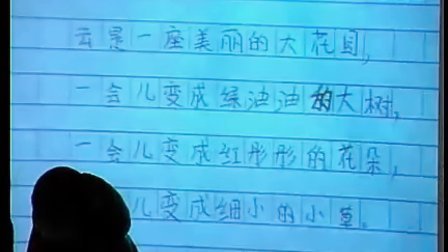 云是一座美丽的大花园,
一会儿变成绿油油的大树,
一会儿变成红彤彤的花朵,
儿变成细小的小草。